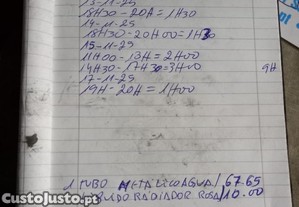 13-11-25
18H30-20H=1H30
14-11-25
18H30-20H00=1H30
15-11-25
11H00-13H=2H00
14H30-17H30=3H00
9H
17-11-25
19H-20H=1H00
1 TUBO METALICO AGUA/67.65
RADIADOR ROSA/10.00
CustoJusto.pt